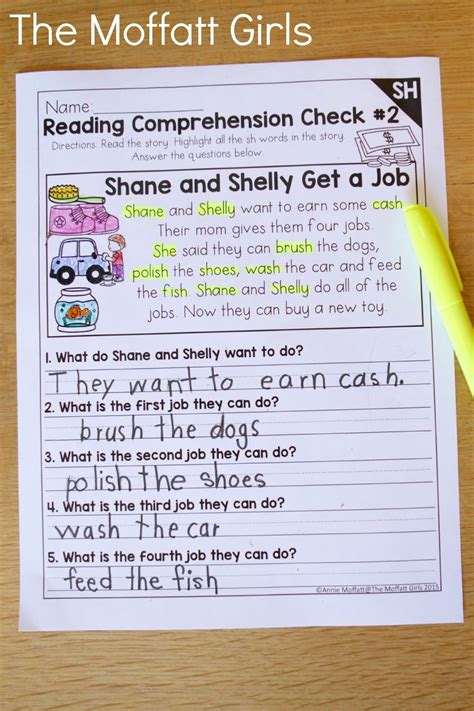 The Moffatt Girls
SH
Name:
Reading Comprehension Check #2
Directions: Read the story. Highlight all the sh words in the story.
Answer the questions below
Shane and Shelly Get a Job
Shane and Shelly want to earn some cash.
Their mom gives them four jobs.
She said they can brush the dogs,
polish the shoes, wash the car and feed
the fish. Shane and Shelly do all of the
jobs. Now they can buy a new toy.
1. What do Shane and Shelly want to do?
They want to earn cash.
2. What is the first job they can do?
brush the dogs
3. What is the second job they can do?
polish the shoes
4. What is the third job they can do?
wash the car
5. What is the fourth job they can do?
feed the fish
©Annie Moffatt@The Moffatt Girls 2015